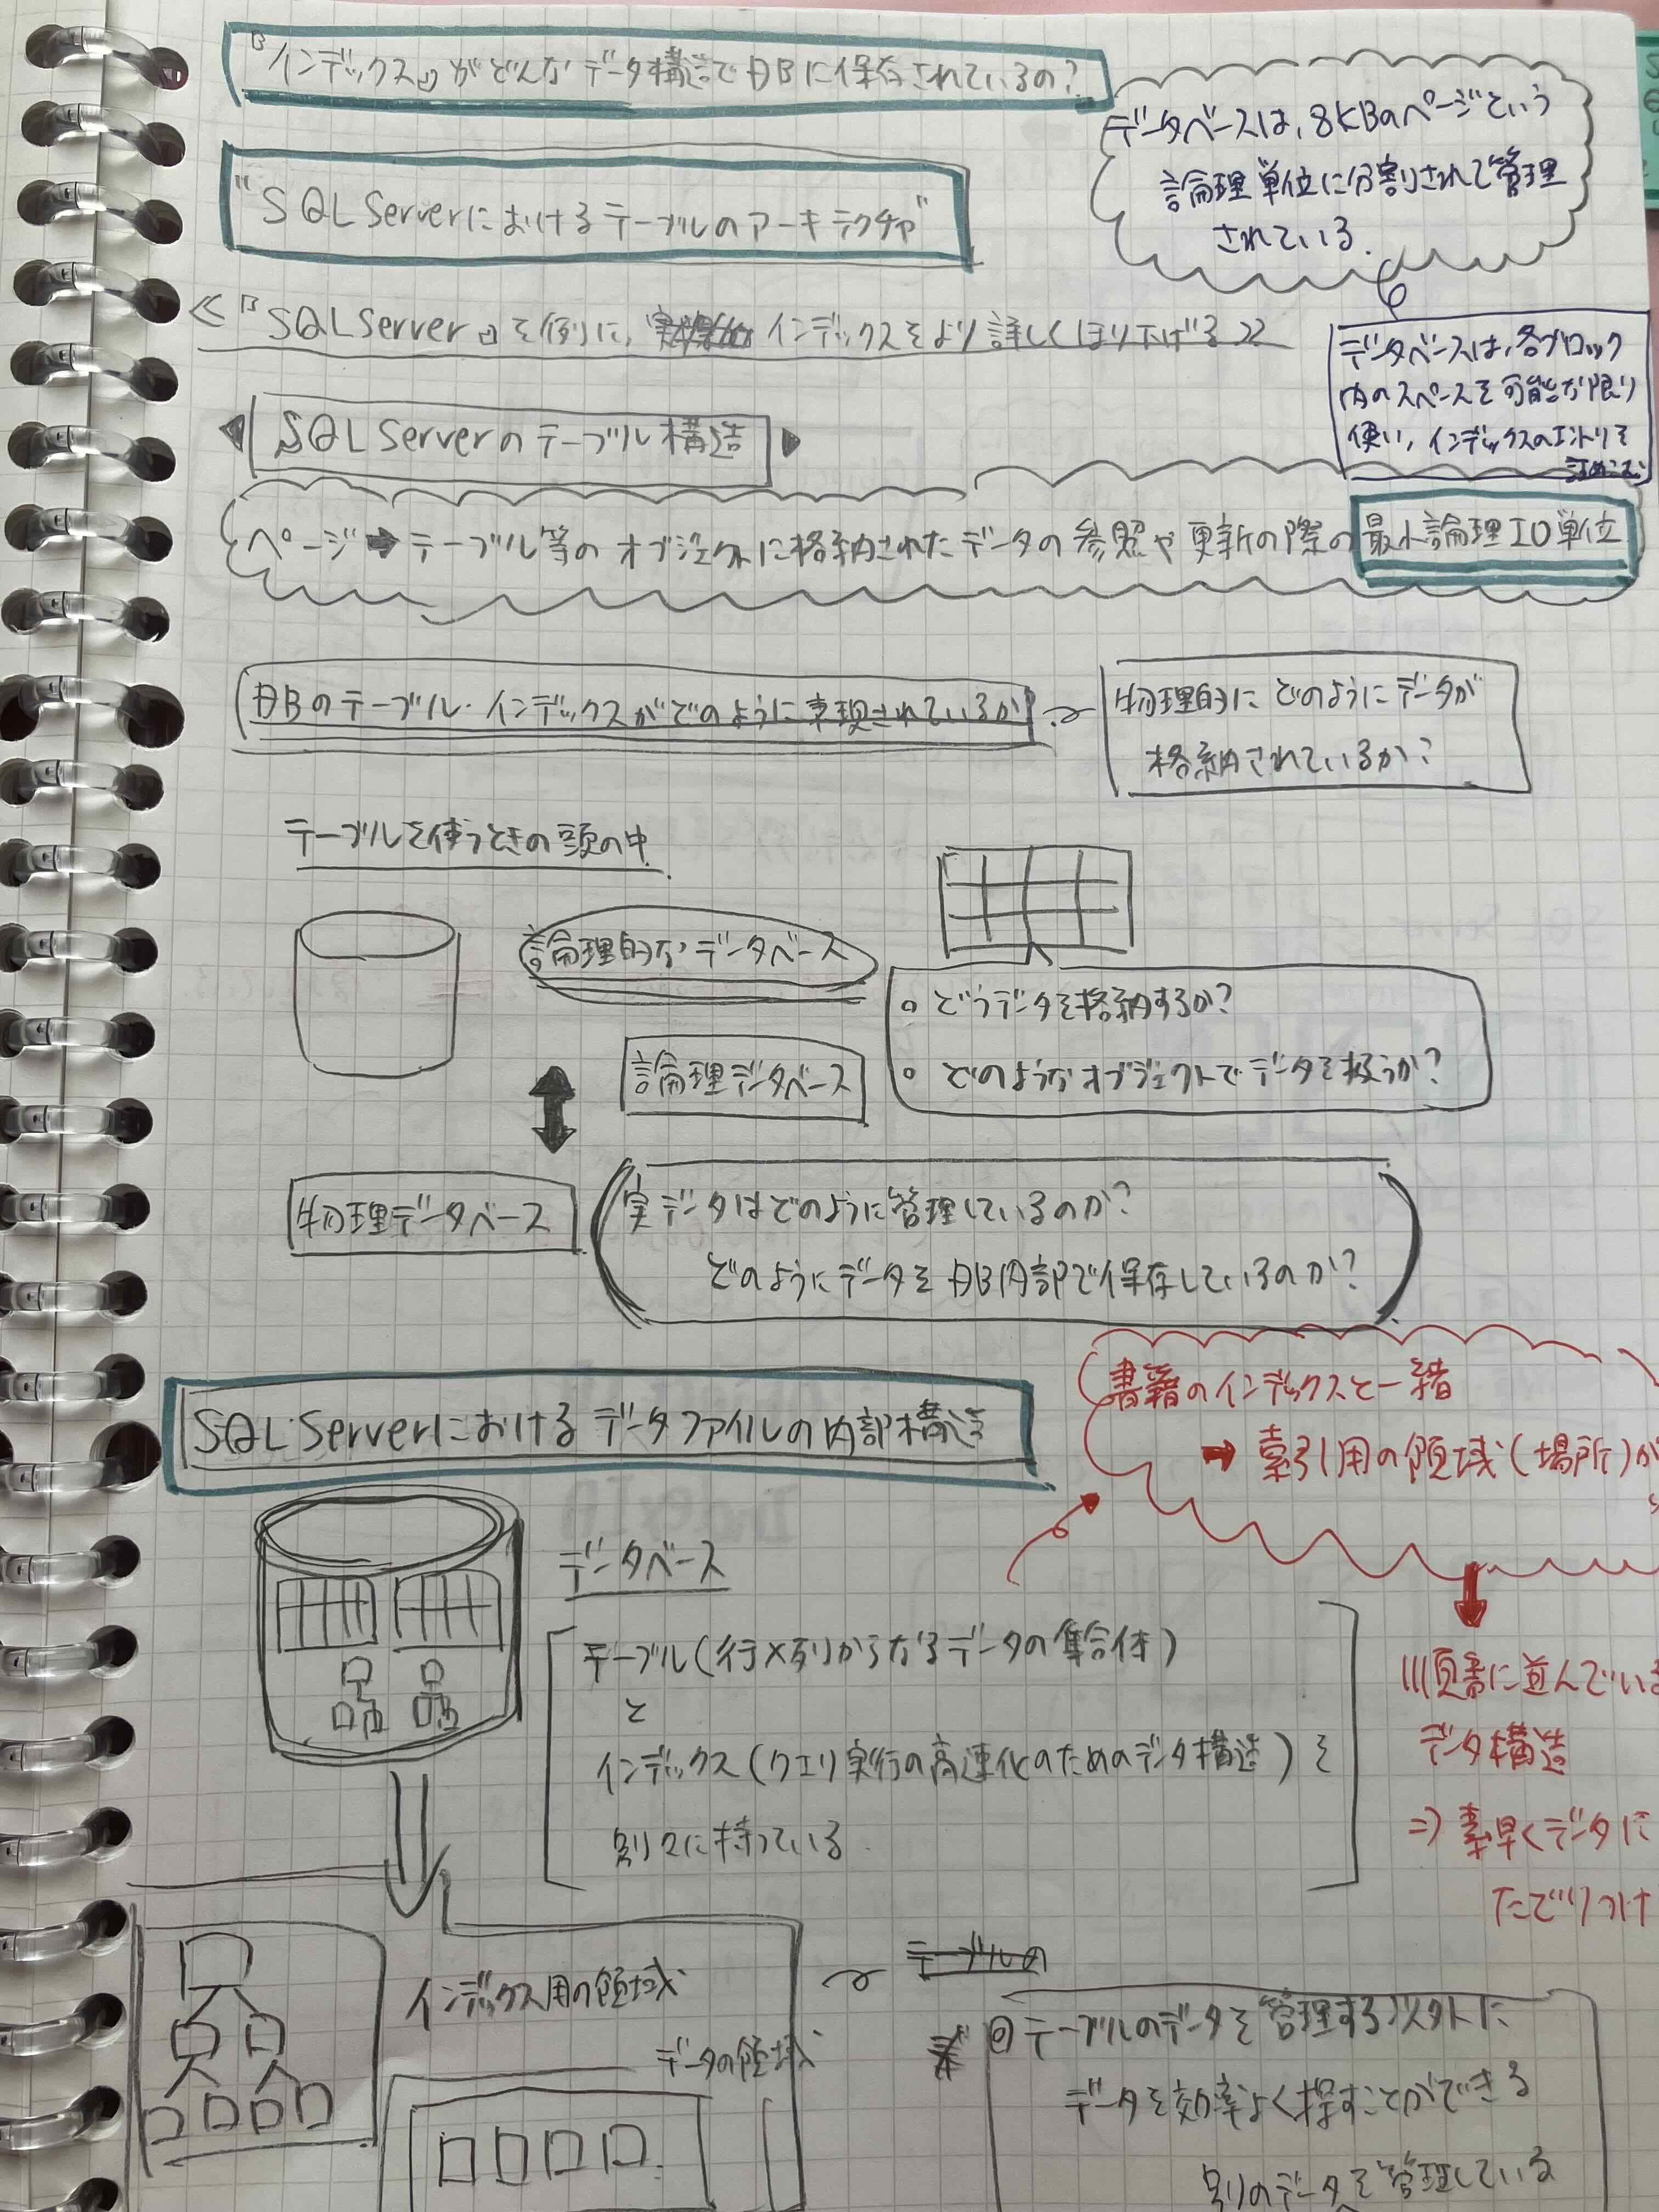 『インデックス』がどんなデータ構造でDBに保存されているの？
データベースは、8KBのページという
論理単位に分割されて管理
されている.
"SQL Serverにおけるテーブルのアーキテクチャ"
≪『SQL Server』を例に、インデックスをより詳しくほり下げる≫
データベースは、各ブロック
内のスペースを可能な限り
使い、インデックスのエントリを
詰めこむ
SQL Serverのテーブル構造
ページ➡テーブル等のオブジェクトに格納されたデータの参照や更新の際の最小論理IO単位
DBのテーブル・インデックスがどのように表現されているか
物理的にどのようにデータが
格納されているか？
テーブルを使うときの頭の中
論理的なデータベース
○ どうデータを格納するか？
論理データベース
○ どのようなオブジェクトでデータを扱うか？
物理データベース
実データはどのように管理しているのか？
どのようにデータをDB内部で保存しているのか？
書籍のインデックスと一緒
➡ 索引用の領域(場所)が
SQL Serverにおけるデータファイルの内部構造
データベース
テーブル(行×列からなるデータの集合体)
と
インデックス(クエリ実行の高速化のためのデータ構造)を
別々に持っている
順番に並んでいる
データ構造
⇒ 素早くデータに
たどりつけ
インデックス用の領域
データの領域
テーブルの
◎テーブルのデータを管理する以外に
データを効率よく探すことができる
別のデータを管理している